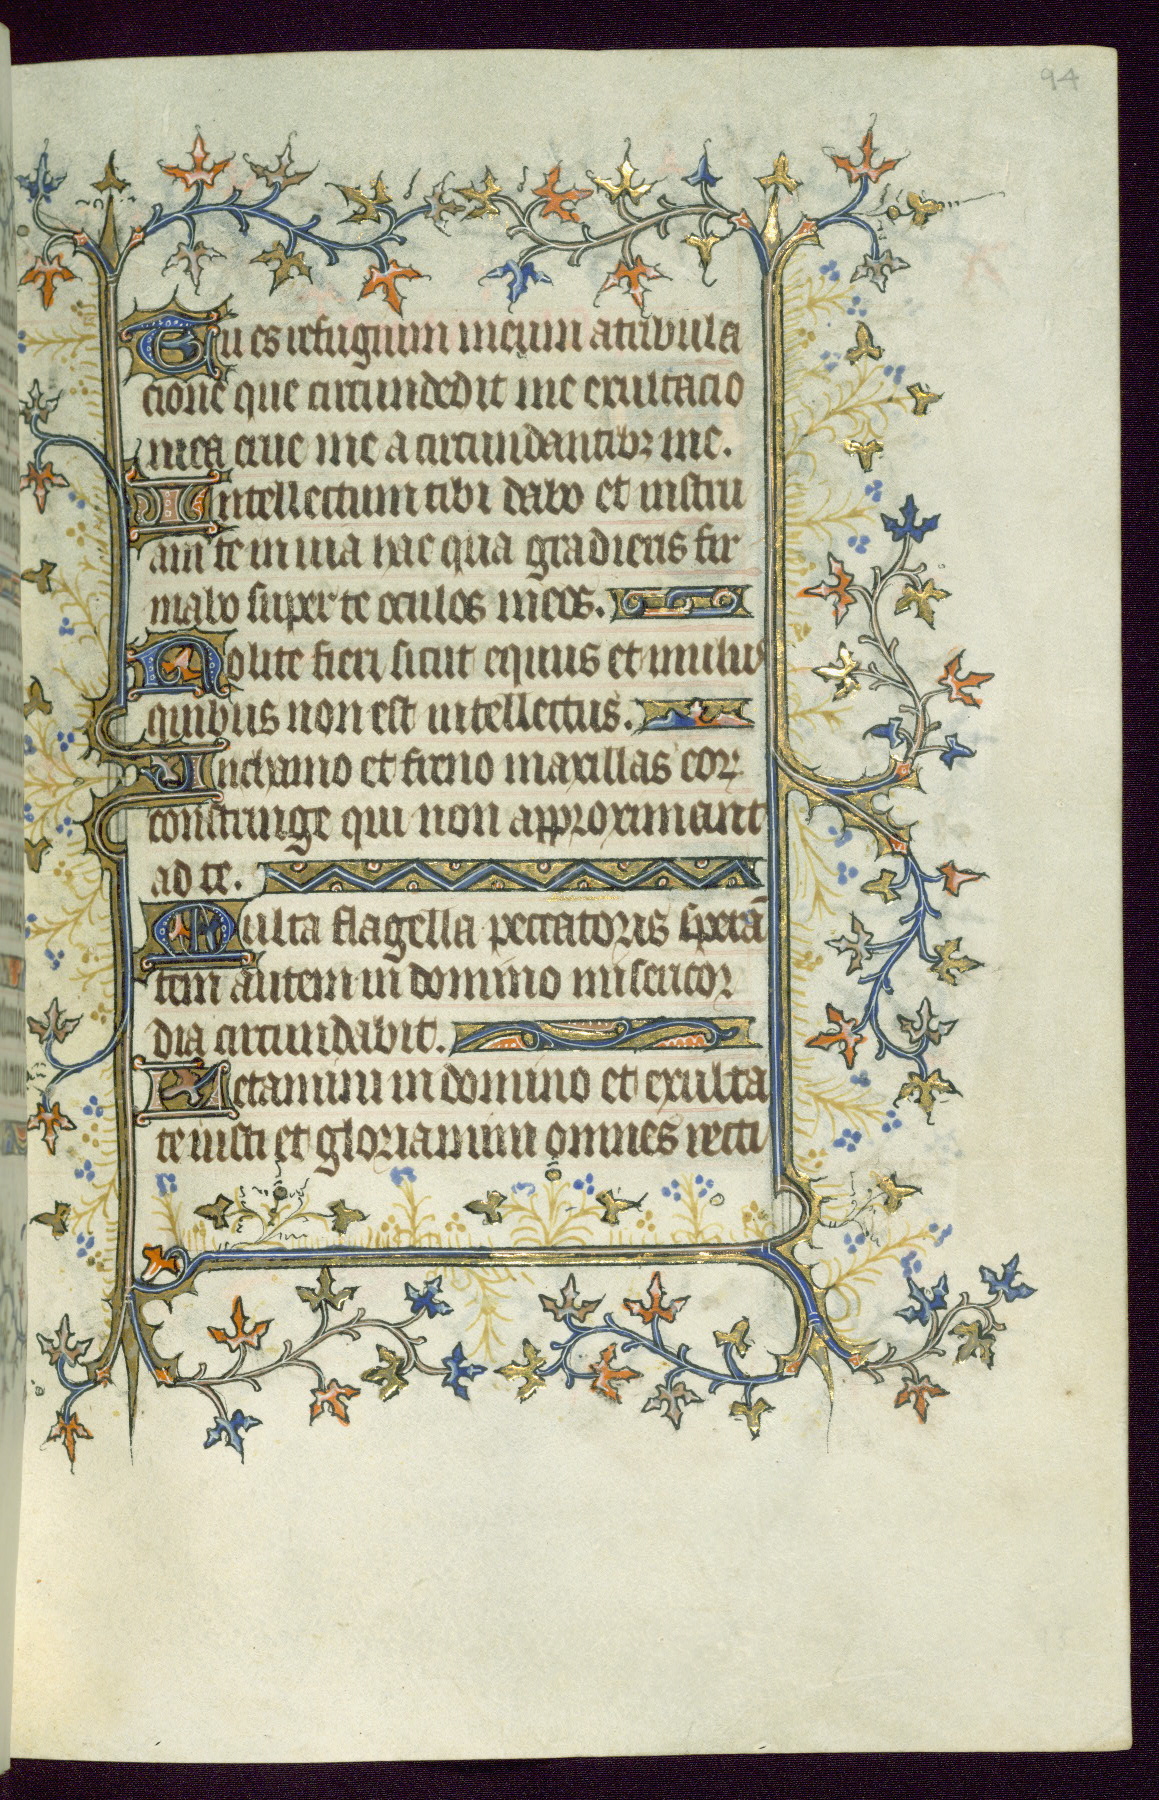 94
Tu es refugium meum a tribula
cione que circumdedit me exultacio
mea erue me a circundantibꝫ me.
Intellectum tibi dabo et instru
am te in uia hac qua gradieris fir
mabo super te oculos meos.
Nolite fieri sicut equus et mulus
quibus non est intellectus.
In chamo et freno maxillas eoꝝ
constringe qui non approximant
ad te.
Multa flagella peccatoris sperā
tem autem in domino misericor
dia circundabit.
Letamini in domino et exulta
te iusti et gloriamini omnes recti